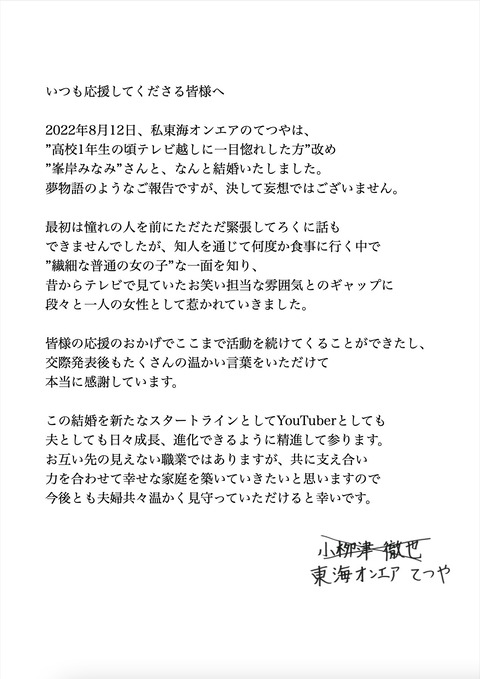 いつも応援してくださる皆様へ
2022年8月12日、私東海オンエアのてつやは、
”高校1年生の頃テレビ越しに一目惚れした方”改め
”峯岸みなみ”さんと、なんと結婚いたしました。
夢物語のようなご報告ですが、決して妄想ではございません。
最初は憧れの人を前にただただ緊張してろくに話も
できませんでしたが、知人を通じて何度か食事に行く中で
”繊細な普通の女の子”な一面を知り、
昔からテレビで見ていたお笑い担当な雰囲気とのギャップに
段々と一人の女性として惹かれていきました。
皆様の応援のおかげでここまで活動を続けてくることができたし、
交際発表後もたくさんの温かい言葉をいただけて
本当に感謝しています。
この結婚を新たなスタートラインとしてYouTuberとしても
夫としても日々成長、進化できるように精進して参ります。
お互い先の見えない職業ではありますが、共に支え合い
力を合わせて幸せな家庭を築いていきたいと思いますので
今後とも夫婦共々温かく見守っていただけると幸いです。
小柳津 徹也
東海オンエア てつや